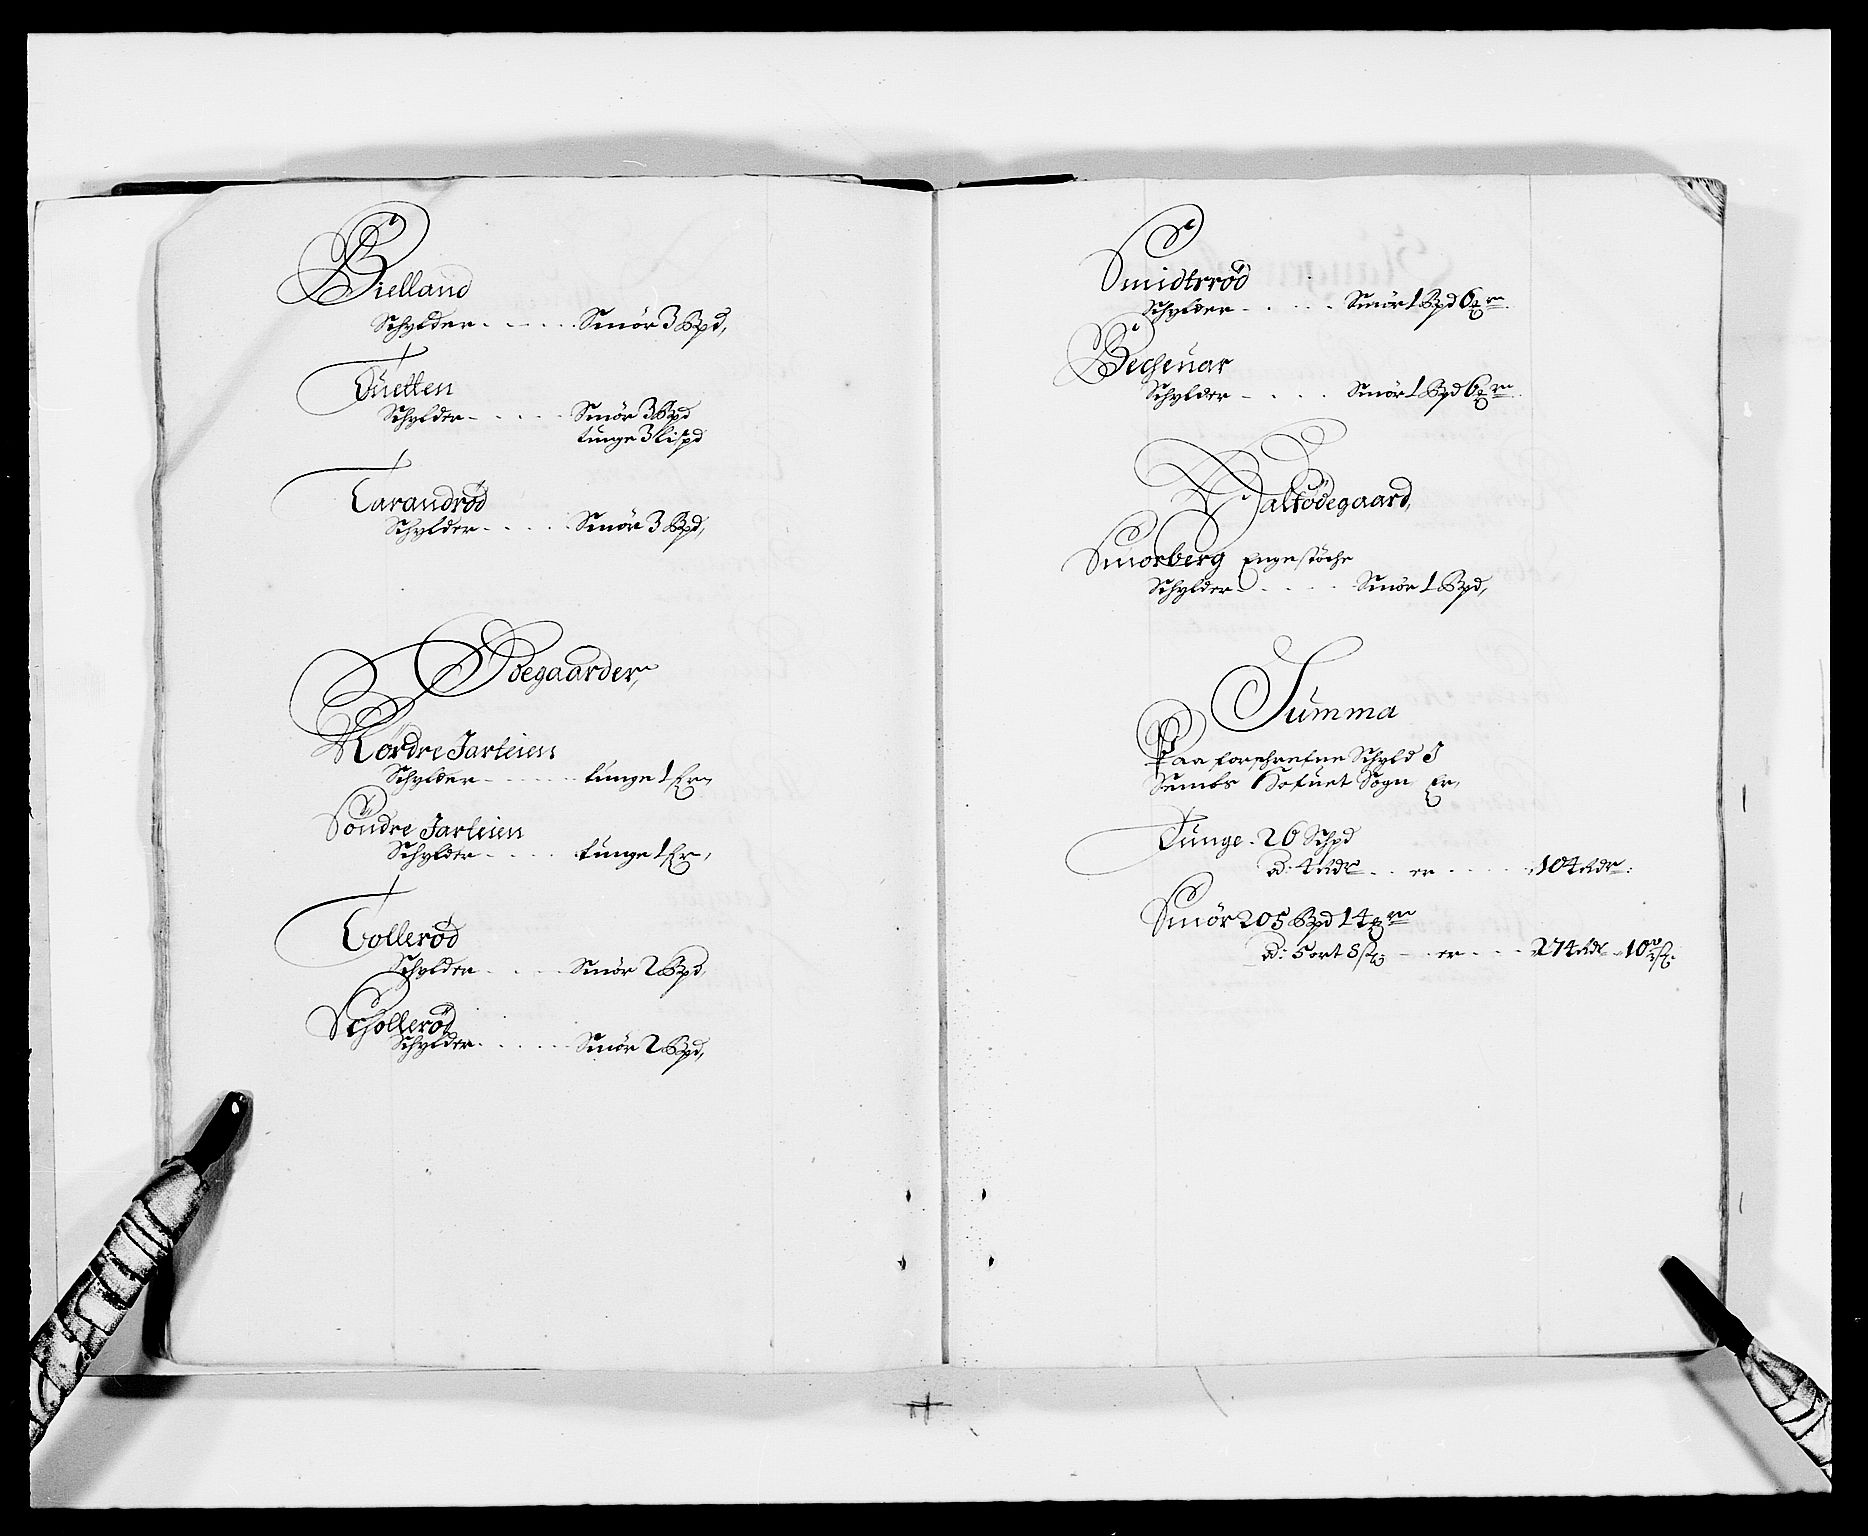 Bielland
Schylder - - - - - Smör 3 Bpd,
Tuetten
Schylder - - - - - Smör 3 Bpd
tunge 3 lispd
Tarandröd
Schylder - - - - - Smör 3 Bpd,
Ødegaarder,
Nordre Jarleien
Schylder - - - - - tunge 1 Er
Söndre Jarleien
Schylder - - - - tunge 1 Er,
Tolleröd
Schylder - - - - Smör 2 Bpd,
Scholleröd
Schylder - - - - - Smör 2 Bpd,
Smidtzröd
Schylder - - - - - Smör 1 Bpd 6
Bechenar
Schylder - - - - Smör 1 Bpd 6
Halfödegaard,
Smorberg Engestöche
Schylder - - - - Smör 1 Bpd,
Summa
Paa forschrefne Schyld J
Sembs Hofuet Sogn Er,
Tunge - 26 Schpd
Ad: 4 Rdr - - er - - - - 104 Rdr:
Smör 205 Bpd 14
Ad: 5 ort 8 - er - - - 274 Rdr 10